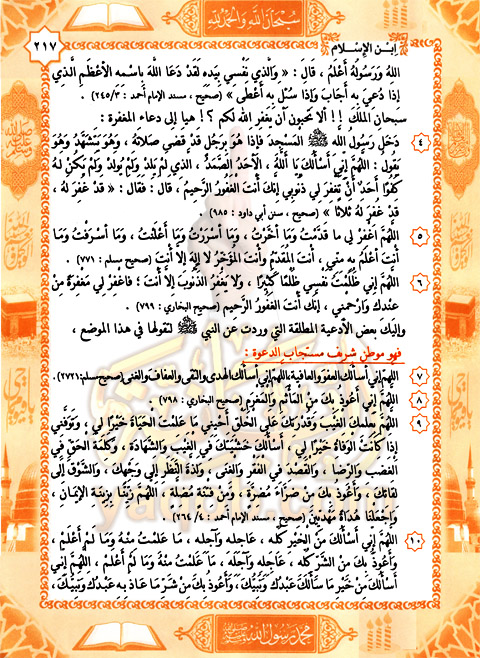 سبحان الله والحمد لله
٢١٧
ابن الإسلام
اللهُ وَرَسُولُهُ أَعْلَمُ ، قَالَ : « وَالَّذِي نَفْسِي بِيَدِهِ لَقَدْ دَعَا اللَّهَ بِاسْمِهِ الْأَعْظَمِ الَّذِي
إِذَا دُعِيَ بِهِ أَجَابَ وَإِذَا سُئِلَ بِهِ أَعْطَى » (صحيح ، مسند الإمام أحمد : ٢٤٥/٣) .
سبحان الملك !! ألا تحبون أن يغفر الله لكم ؟! هيا إلى دعاء المغفرة :
٤ دَخَلَ رَسُولُ اللهِ ﷺ الْمَسْجِدَ فَإِذَا هُوَ بِرَجُلٍ قَدْ قَضَى صَلَاتَهُ ، وَهُوَ يَتَشَهَّدُ وَهُوَ
يَقُولُ : اللَّهُمَّ إِنِّي أَسْأَلُكَ يَا أَللهُ ، الْأَحَدُ الصَّمَدُ ، الَّذِي لَمْ يَلِدْ وَلَمْ يُولَدْ وَلَمْ يَكُنْ لَهُ
كُفُوًا أَحَدٌ أَنْ تَغْفِرَ لِي ذُنُوبِي إِنَّكَ أَنْتَ الْغَفُورُ الرَّحِيمُ ، قَالَ : فَقَالَ : « قَدْ غُفِرَ لَهُ ،
قَدْ غُفِرَ لَهُ ثَلَاثًا » (صحيح ، سنن أبي داود : ٩٨٥) .
٥ اللَّهُمَّ اغْفِرْ لِي مَا قَدَّمْتُ وَمَا أَخَّرْتُ ، وَمَا أَسْرَرْتُ وَمَا أَعْلَنْتُ ، وَمَا أَسْرَفْتُ وَمَا
أَنْتَ أَعْلَمُ بِهِ مِنِّي ، أَنْتَ الْمُقَدِّمُ وَأَنْتَ الْمُؤَخِّرُ لَا إِلَهَ إِلَّا أَنْتَ (صحيح مسلم : ٧٧١) .
٦ اللَّهُمَّ إِنِّي ظَلَمْتُ نَفْسِي ظُلْمًا كَثِيرًا ، وَلَا يَغْفِرُ الذُّنُوبَ إِلَّا أَنْتَ ؛ فَاغْفِرْ لِي مَغْفِرَةً مِنْ
عِنْدِكَ وَارْحَمْنِي ، إِنَّكَ أَنْتَ الْغَفُورُ الرَّحِيمُ (صحيح البخاري : ٧٩٩) .
وإليك بعض الأدعية المطلقة التي وردت عن النبي ﷺ لتقولها في هذا الموضع ،
فهو موطن شريف مستجاب الدعوة :
٧ اللَّهُمَّ إِنِّي أَسْأَلُكَ الْعَفْوَ وَالْعَافِيَةَ ، اللَّهُمَّ إِنِّي أَسْأَلُكَ الْهُدَى وَالتُّقَى وَالْعَفَافَ وَالْغِنَى (صحيح مسلم : ٢٧٢١) .
٨ اللَّهُمَّ إِنِّي أَعُوذُ بِكَ مِنَ الْمَأْثَمِ وَالْمَغْرَمِ (صحيح البخاري : ٧٩٨) .
٩ اللَّهُمَّ بِعِلْمِكَ الْغَيْبَ وَقُدْرَتِكَ عَلَى الْخَلْقِ أَحْيِنِي مَا عَلِمْتَ الْحَيَاةَ خَيْرًا لِي ، وَتَوَفَّنِي
إِذَا كَانَتِ الْوَفَاةُ خَيْرًا لِي ، أَسْأَلُكَ خَشْيَتَكَ فِي الْغَيْبِ وَالشَّهَادَةِ ، وَكَلِمَةَ الْحَقِّ فِي
الْغَضَبِ وَالرِّضَا ، وَالْقَصْدَ فِي الْفَقْرِ وَالْغِنَى ، وَلَذَّةَ النَّظَرِ إِلَى وَجْهِكَ ، وَالشَّوْقَ إِلَى
لِقَائِكَ ، وَأَعُوذُ بِكَ مِنْ ضَرَّاءَ مُضِرَّةٍ ، وَمِنْ فِتْنَةٍ مُضِلَّةٍ ، اللَّهُمَّ زَيِّنَّا بِزِينَةِ الْإِيمَانِ ،
وَاجْعَلْنَا هُدَاةً مَهْدِيِّينَ (صحيح ، مسند الإمام أحمد : ٢٦٤/٤) .
١٠ اللَّهُمَّ إِنِّي أَسْأَلُكَ مِنَ الْخَيْرِ كُلِّهِ ، عَاجِلِهِ وَآجِلِهِ ، مَا عَلِمْتُ مِنْهُ وَمَا لَمْ أَعْلَمْ ،
وَأَعُوذُ بِكَ مِنَ الشَّرِّ كُلِّهِ ، عَاجِلِهِ وَآجِلِهِ ، مَا عَلِمْتُ مِنْهُ وَمَا لَمْ أَعْلَمْ ، اللَّهُمَّ إِنِّي
أَسْأَلُكَ مِنْ خَيْرِ مَا سَأَلَكَ عَبْدُكَ وَنَبِيُّكَ ، وَأَعُوذُ بِكَ مِنْ شَرِّ مَا عَاذَ بِهِ عَبْدُكَ وَنَبِيُّكَ ،
محمد رسول الله